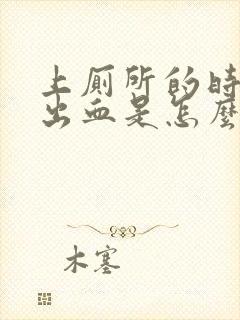 上厕所的时
出血是怎麽
木塞